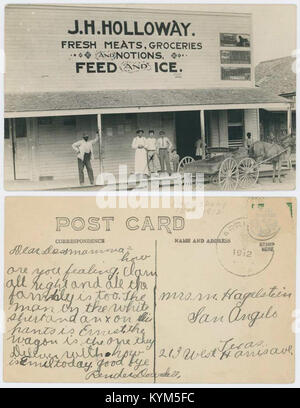 J.H.HOLLOWAY.
FRESH MEATS, GROCERIES
AND NOTIONS,
FEED AND ICE.
POST CARD
CORRESPONDENCE
NAME AND ADDRESS
HERE
1912
Dear
how
are you feeling. I am
all right and all the
family is too. the
man on the white
shirt and an x on the
pants is Ernest. the
wagon is the one they
with. how
is emil today. good bye
Mrs. M. Hagelstein
San Angelo
Texas.
213 West Harris ave.